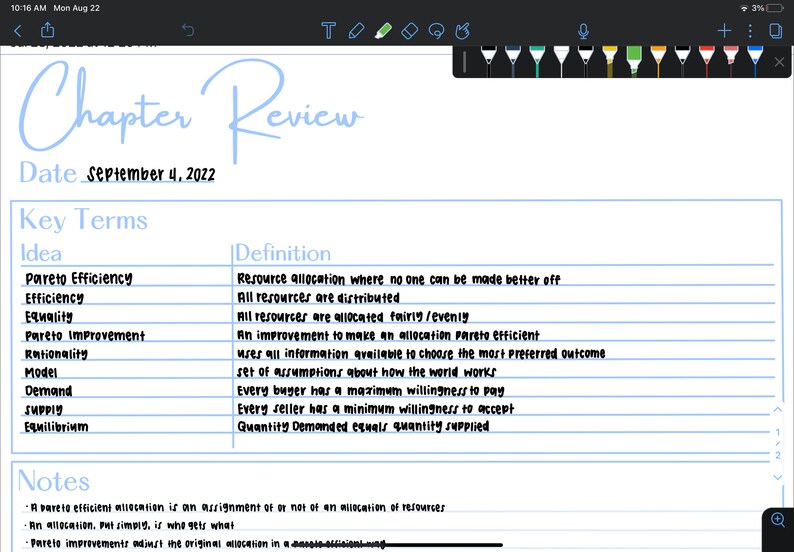 10:16 AM Mon Aug 22 3%
Chapter Review
Date September 4, 2022
Key Terms
Idea Definition
Pareto Efficiency Resource allocation where no one can be made better off
Efficiency All resources are distributed
Equality All resources are allocated fairly/evenly
Pareto Improvement An improvement to make an allocation pareto efficient
Rationality uses all information available to choose the most preferred outcome
Model set of assumptions about how the world works
Demand Every buyer has a maximum willingness to pay
supply Every seller has a minimum willingness to accept
Equilibrium Quantity Demanded equals quantity supplied
1
/
2
Notes
· A pareto efficient allocation is an assignment of or not of an allocation of resources
· An allocation, put simply, is who gets what
· Pareto improvements adjust the original allocation in a pareto efficient way